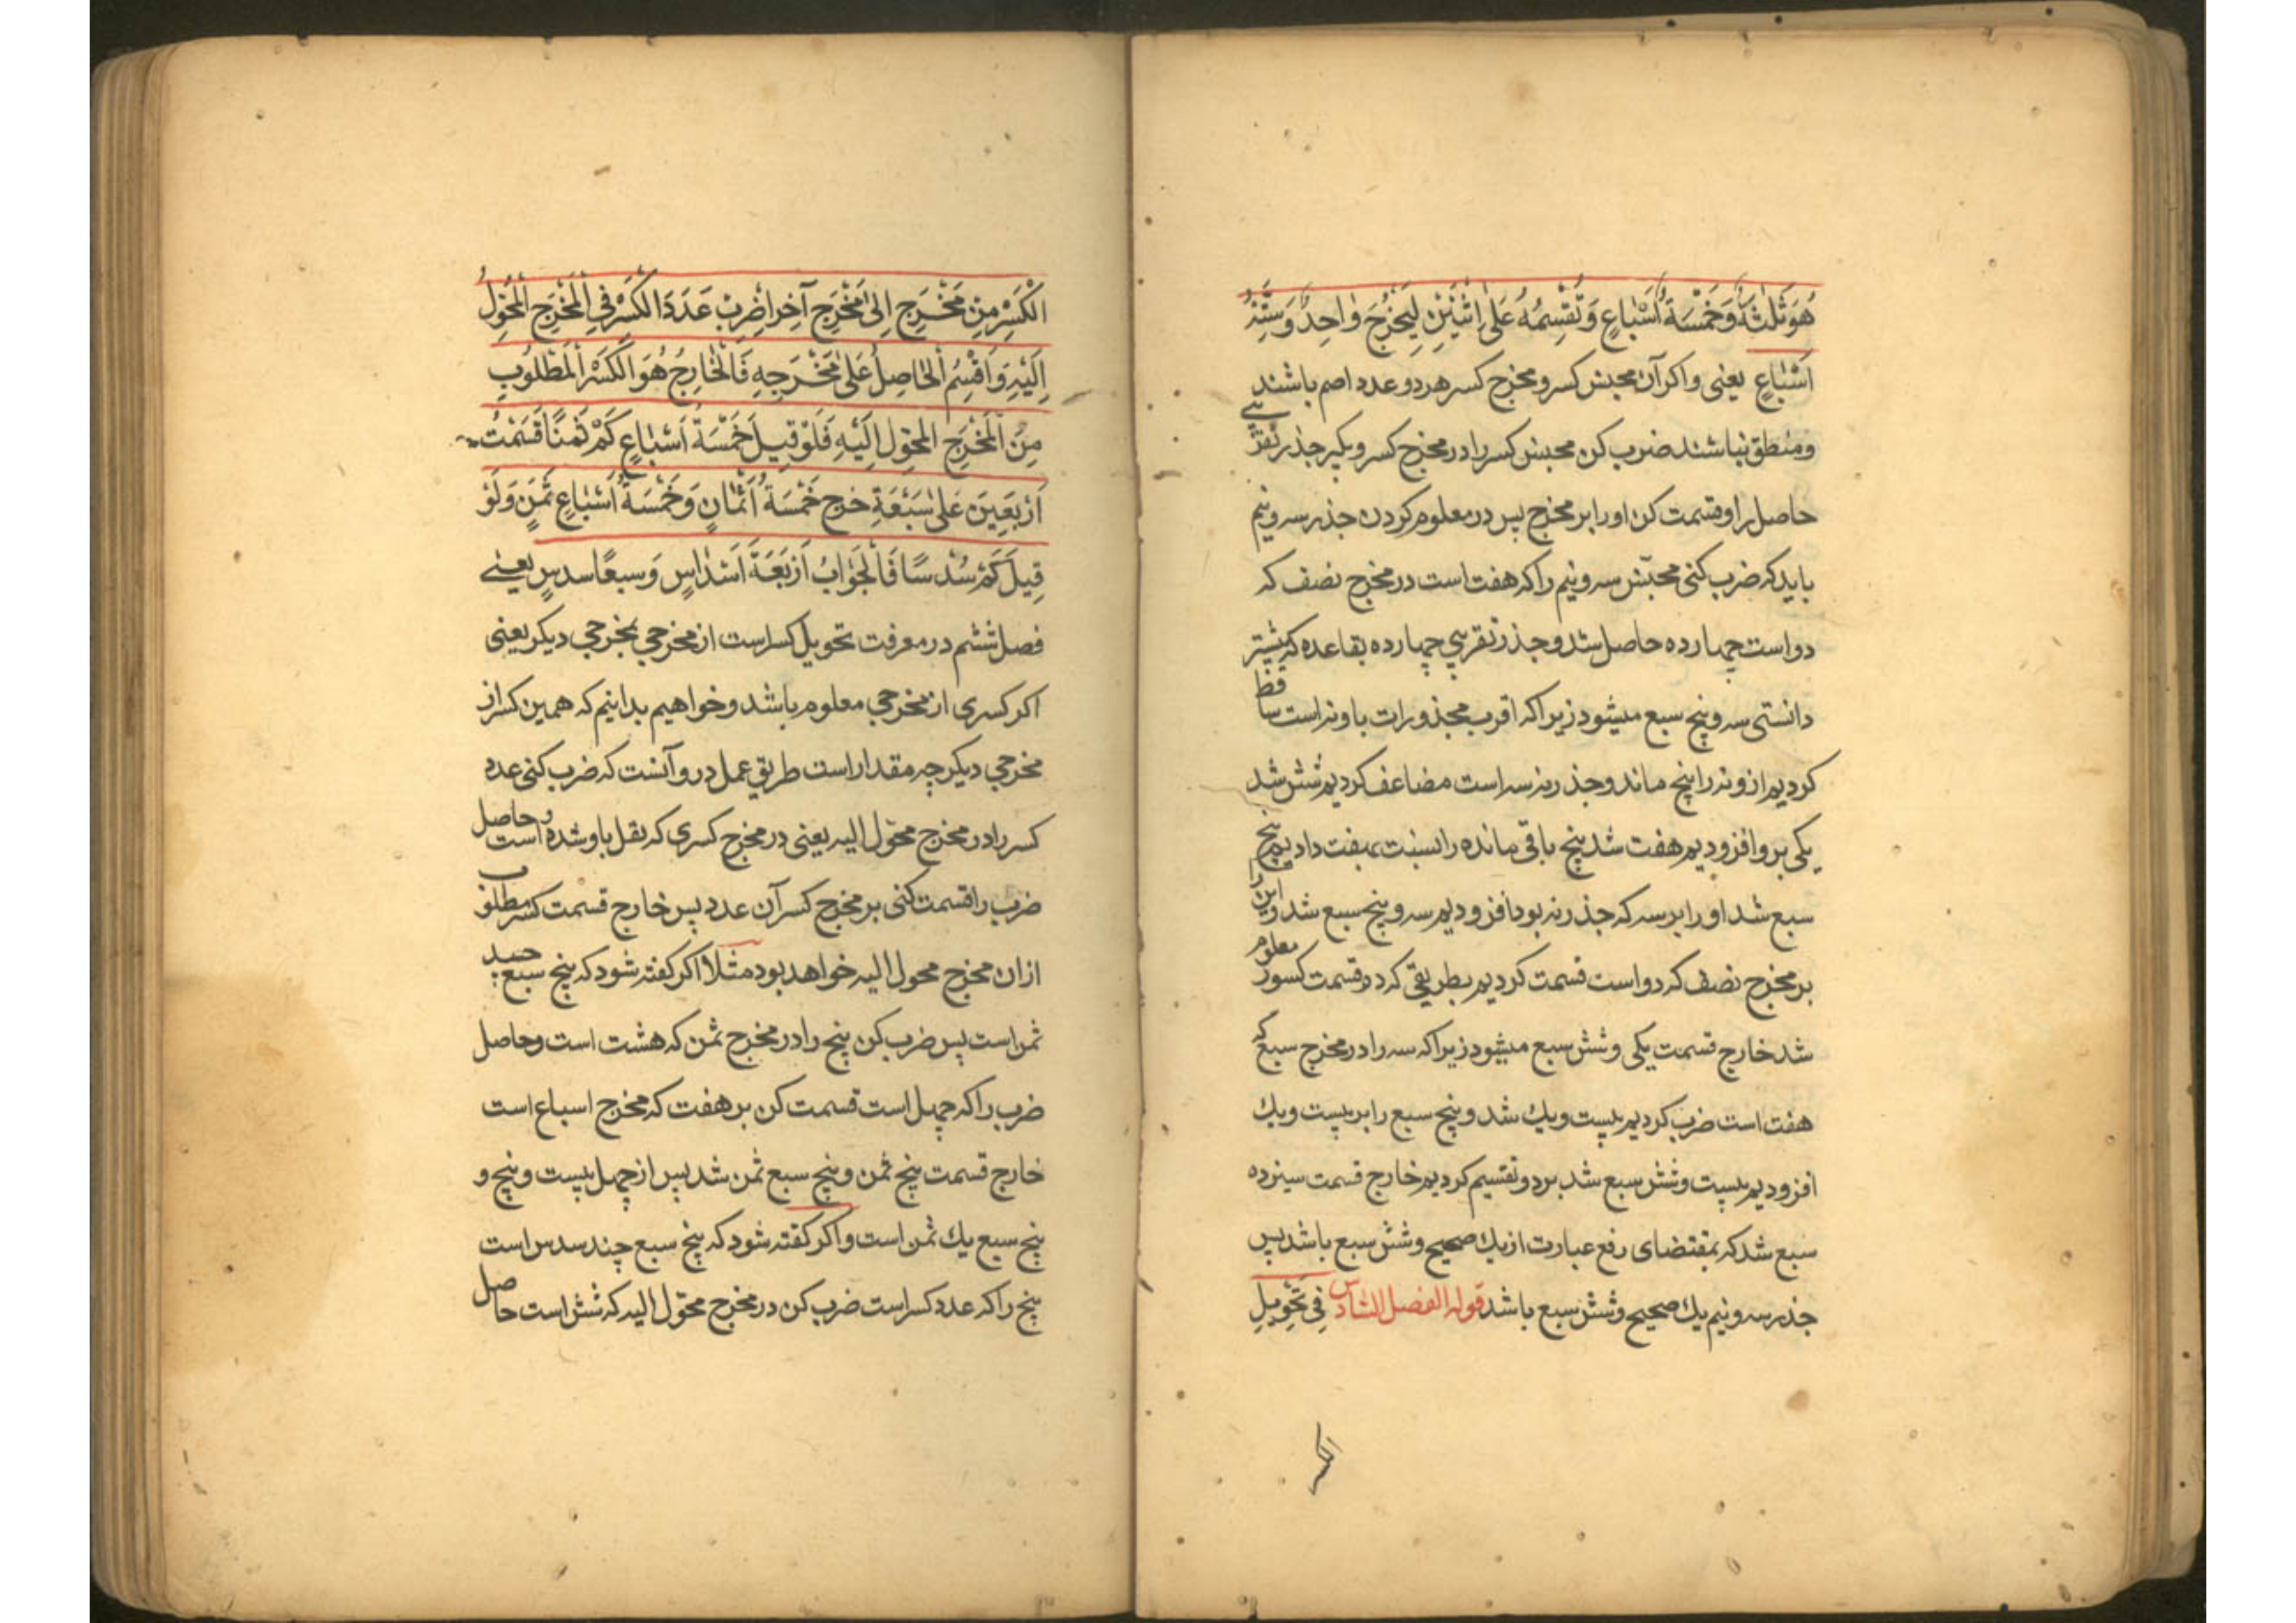 هُوَ ثَلٰثَةٌ وَخَمْسَةُ أَسْبَاعٍ وَتُقَسِّمُهُ عَلیٰ اثْنَیْنِ لِیَخْرُجَ وٰاحِدٌ وَسِتَّةُ
أَسْبَاعٍ یعنی واکر آن مجنس کسر و مخرج کسر هر دو عدد اصم باشند
ومنطق نباشند ضرب کن مجنس کسر را در مخرج کسر وبکیر جذر تقریبی
حاصل را وقسمت کن اورا بر مخرج پس در معلوم کردن جذر سه ونیم
باید که ضرب کنی مجنّس سه ونیم را که هفت است در مخرج نصف که
دو است چهارده حاصل شد وجذر تقریبی چهارده بقاعده که پیشتر
دانستی سه و پنج سبع میشود زیرا که اقرب مجذورات باو نه است ساقط
کردیم ازو نه را پنج ماند وجذر نه سه است مضاعف کردیم شش شد
یکی برو افزودیم هفت شد پنج باقی مانده را نسبت بهفت دادیم پنج
سبع شد او را بر سه که جذر نه بود افزودیم سه و پنج سبع شد واین را
بر مخرج نصف که دو است قسمت کردیم بطریقی که در قسمت کسور معلوم
شد خارج قسمت یکی وشش سبع میشود زیرا که سه را در مخرج سبع که
هفت است ضرب کردیم بیست ویك شد و پنج سبع را بر بیست ویك
افزودیم بیست وشش سبع شد بر دو تقسیم کردیم خارج قسمت سیزده
سبع شد که بمقتضای رفع عبارت از یك صحیح وشش سبع باشد پس
جذر سه ونیم یك صحیح وشش سبع باشد قوله الفصل السّادس فِی تَحْوِیلِ
الکسر
الْکَسْرِ مِنْ مَخْرَجٍ اِلیٰ مَخْرَجٍ آخِر اضْرِبْ عَدَدَ الکَسْرِ فِی الْمَخْرَجِ الْمُحَوَّلِ
اِلَیْهِ وَاقْسِمِ الْحٰاصِلَ عَلیٰ مَخْرَجِهِ فَالْخٰارِجُ هُوَ الْکَسْرُ الْمَطْلُوبُ
مِنَ الْمَخْرَجِ المُحَوَّلِ اِلَیْهِ فَلَوْ قِیلَ خَمْسَةُ اَسْبٰاعٍ کَمْ ثُمْنًا قَسَمْتَ
اَرْبَعِینَ عَلیٰ سَبْعَةٍ خَرَجَ خَمْسَةُ اَثْمٰانٍ وَخَمْسَةُ اَسْبٰاعِ ثُمْنٍ وَلَوْ
قِیلَ کَمْ سُدْسًا فَالْجَوٰابُ اَرْبَعَةُ اَسْدٰاسٍ وَسبعًا سدسٍ یعنی
فصل ششم در معرفت تحویل کسر است از مخرجی بمخرجی دیکر یعنی
اکر کسری از مخرجی معلوم باشد وخواهیم بدانیم که همین کسر از
مخرجی دیکر چه مقدار است طریق عمل درو آنست که ضرب کنی عدد
کسر را در مخرج محوّل الیه یعنی در مخرج کسری که نقل باو شده است وحاصل
ضرب را قسمت کنی بر مخرج کسر آن عدد پس خارج قسمت کسر مطلوب
ازان مخرج محول الیه خواهد بود مثلا اکر کفته شود که پنج سبع چند
ثمن است پس ضرب کن پنج را در مخرج ثمن که هشت است وحاصل
ضرب را که چهل است قسمت کن بر هفت که مخرج اسباع است
خارج قسمت پنج ثمن و پنج سبع ثمن شد پس از چهل بیست و پنج و
پنج سبع یك ثمن است واکر کفته شود که پنج سبع چند سدس است
پنج را که عدد کسر است ضرب کن در مخرج محوّل الیه که شش است حاصل